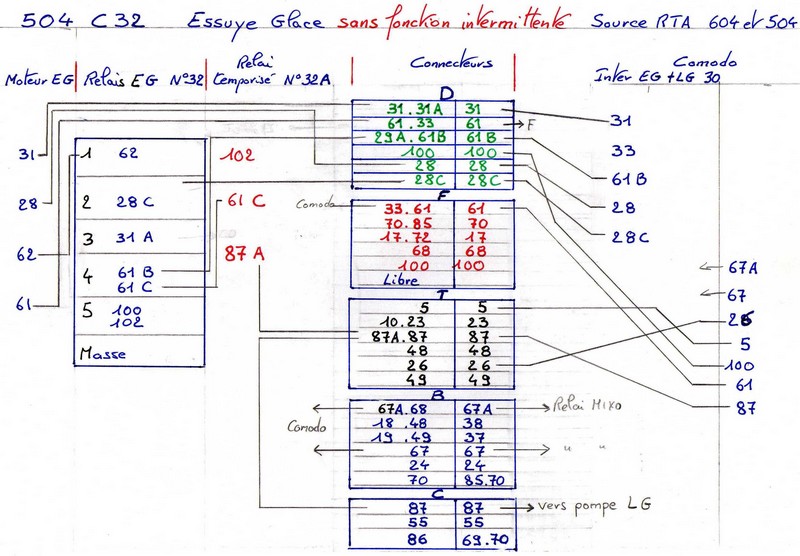 504 C32 Essuye Glace sans fonction intermittente Source RTA 604 et 504
Moteur EG
Relais EG N°32
Relai
temporisé N°32A
Connecteurs
Comodo
Inter EG + LG 30
31
28
62
61
1 62
2 28C
3 31A
4 61B
61C
5 100
102
Masse
102
61C
87A
D
31.31A 31
61.33 61 F
29A.61B 61B
100 100
28 28
28C 28C
F
Comodo
33.61 61
70.85 70
17.72 17
68 68
100 100
Libre
T
5 5
10.23 23
87A.87 87
48 48
26 26
49 49
B
Comodo
67A.68 67A Relai Mixo
18.48 38
19.49 37
67 67 " "
24 24
70 85.70
C
87 87 vers pompe LG
55 55
86 69.70
31
33
61B
28
28C
67A
67
26
5
100
61
87